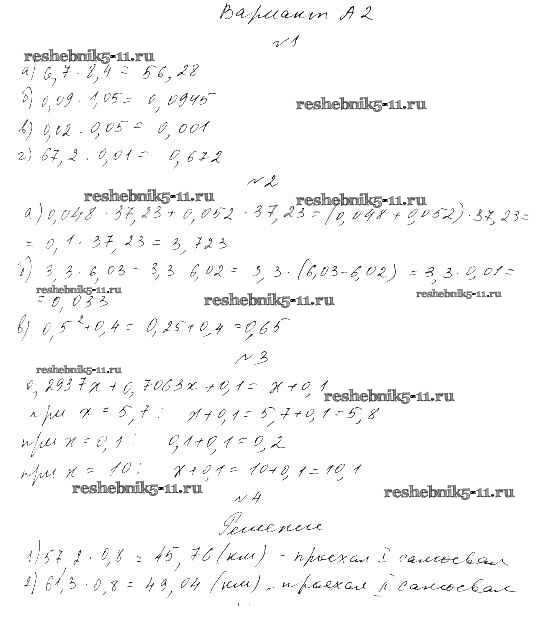 Вариант А2
№1
reshebnik5-11.ru
а) 6,7 · 8,4 = 56,28
б) 0,09 · 1,05 = 0,0945
reshebnik5-11.ru
в) 0,02 · 0,05 = 0,001
г) 67,2 · 0,01 = 0,672
№2
reshebnik5-11.ru
reshebnik5-11.ru
а) 0,048 · 37,23 + 0,052 · 37,23 = (0,048 + 0,052) · 37,23 =
= 0,1 · 37,23 = 3,723
б) 3,3 · 6,03 - 3,3 · 6,02 = 3,3 · (6,03 - 6,02) = 3,3 · 0,01 =
reshebnik5-11.ru
reshebnik5-11.ru
reshebnik5-11.ru
= 0,033
в) 0,5² + 0,4 = 0,25 + 0,4 = 0,65
№3
reshebnik5-11.ru
0,2937x + 0,7063x + 0,1 = x + 0,1
reshebnik5-11.ru
при x = 5,7: x + 0,1 = 5,7 + 0,1 = 5,8
при x = 0,1: 0,1 + 0,1 = 0,2
при x = 10: x + 0,1 = 10 + 0,1 = 10,1
reshebnik5-11.ru
reshebnik5-11.ru
№4
Решение
1) 57,2 · 0,8 = 45,76 (км) - проехал I самосвал
2) 61,3 · 0,8 = 49,04 (км) - проехал II самосвал